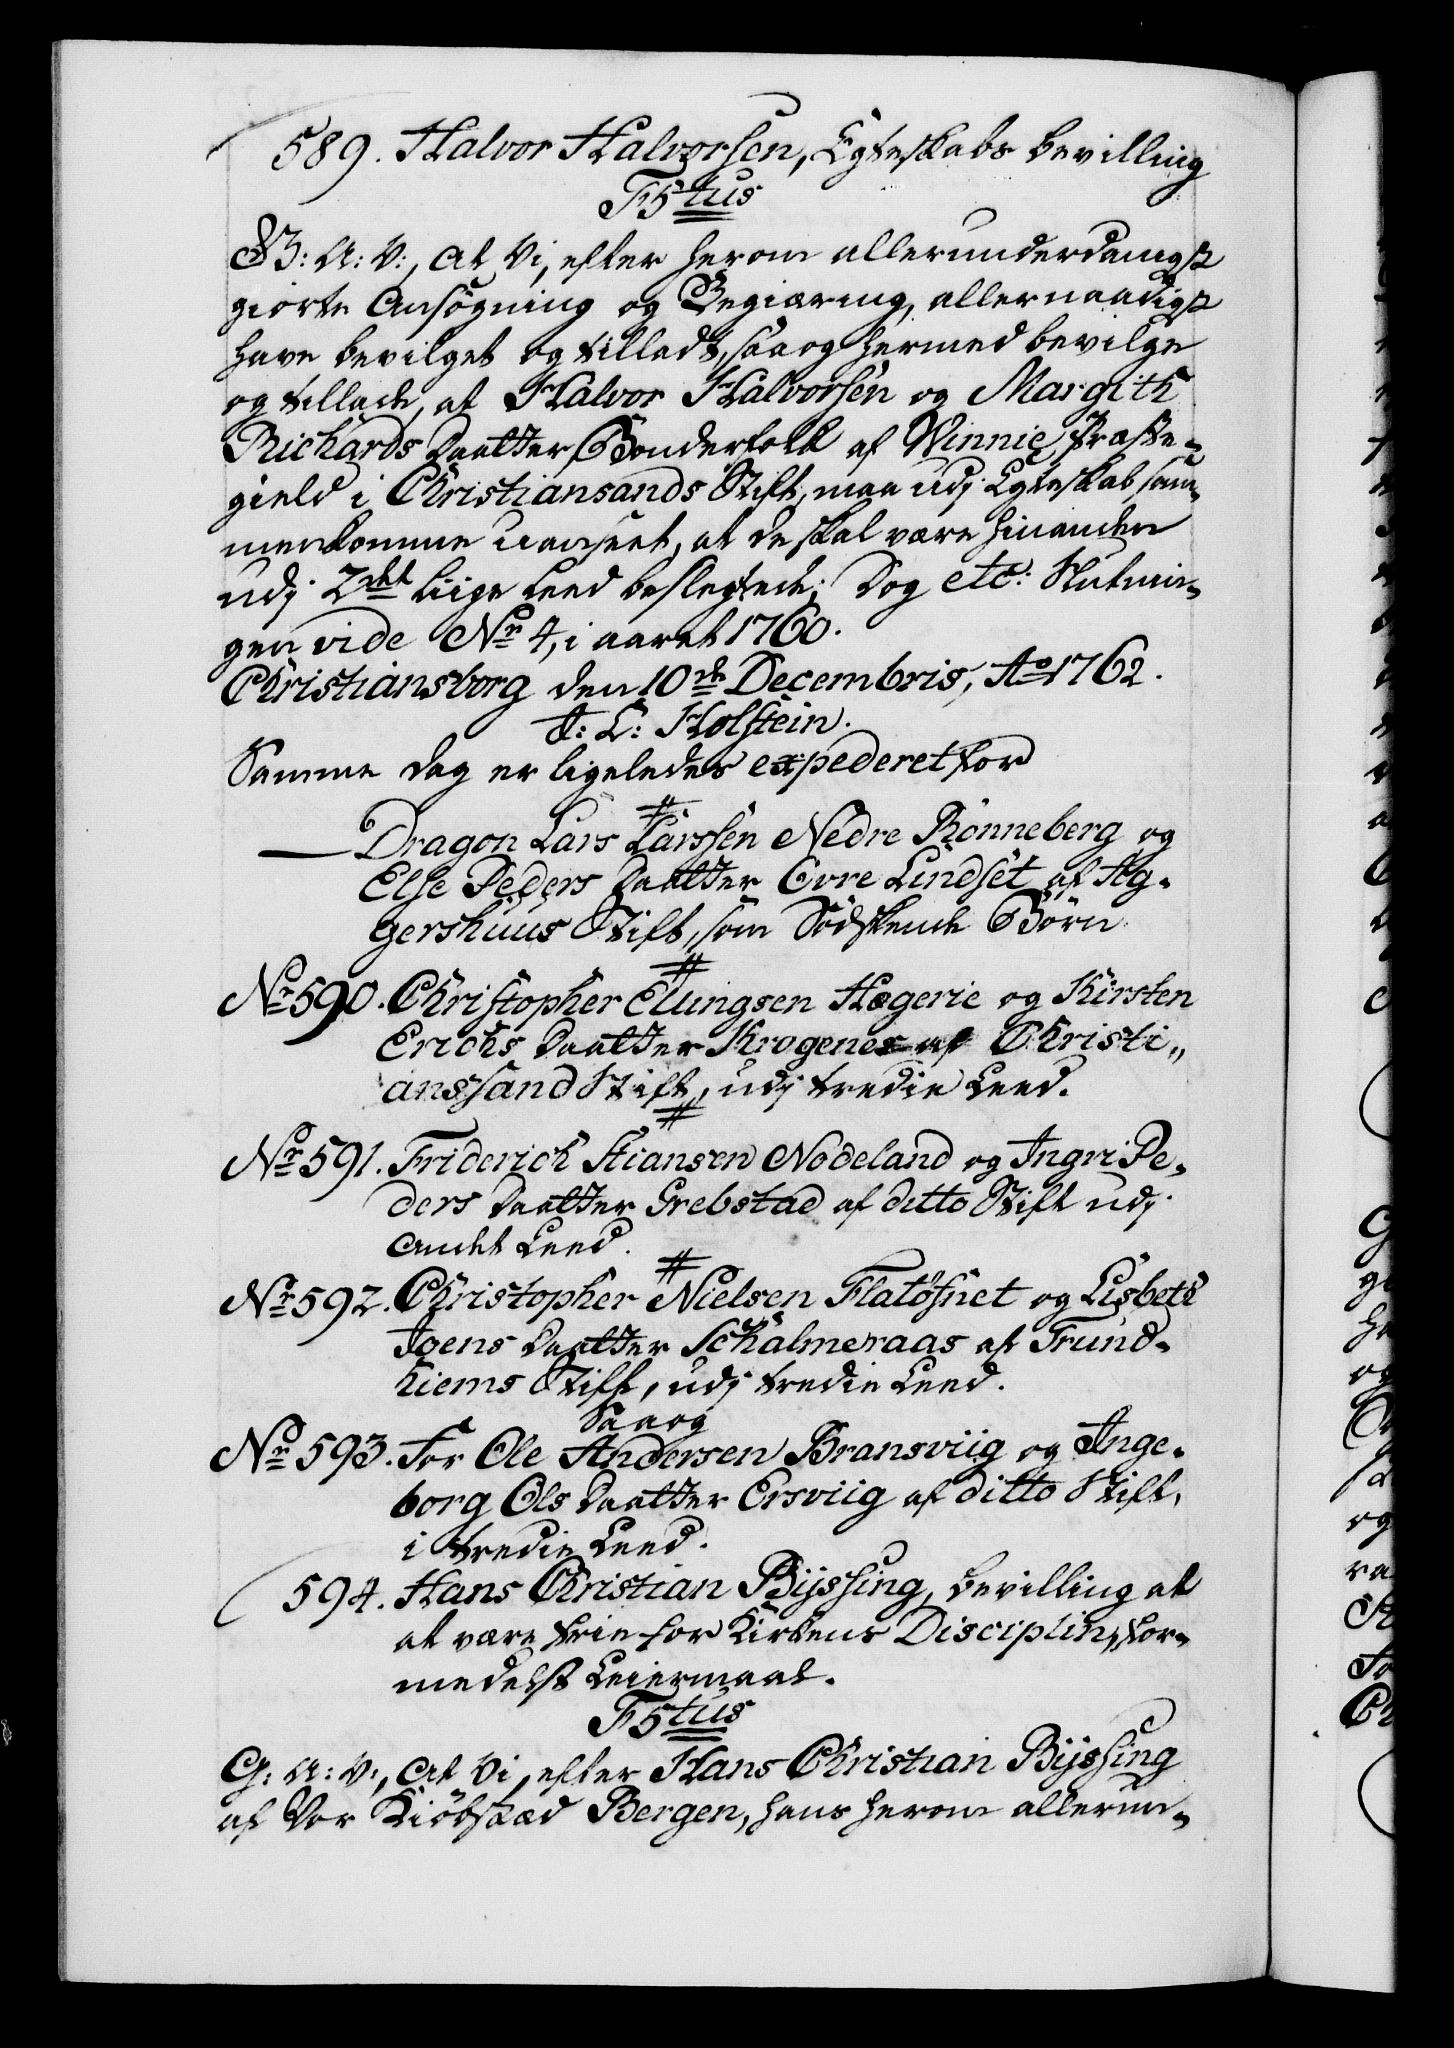 589. Halvor Halvorsen, Egteskabs bevilling
F5tus
G: A: V:, At Vi, efter herom allerunderdanigst
giorte Ansøgning og Begiæring, allernaadigst
have bevilget og tilladt, saa og hermed bevilge
og tillade, at Halvor Halvorsen og Margith
Richards Daatter Bønderfolk af Winnie Præste-
gield i Christiansands Stift, maa udj Egteskab sam-
menkomme uanseet, at de skal være hinanden
udj 2det liige Leed beslegtede; Dog etc: Slutnin-
gen vide No 4, i aaret 1760.
Christiansborg den 10de Decembris, Ao 1762.
J: L: Holstein.
Samme dag er ligeledes expederet for
Dragon Lars Larssen Nedre Rønneberg og
Else Peders Daatter Øvre Lindset af Ag-
gershuus Stift, som Sødskende Børn
Nr 590. Christopher Ellingsen Hægerie og Kirsten
Erichs Daatter Krogenes af Christi-
anssand Stift, udj tredie Leed.
Nr 591. Friderich Stiansen Nødeland og Ingri Pe-
ders Daatter Grebstad af ditto Stift udj
andet Leed.
Nr 592. Christopher Nielsen Flatøsnet og Lisbeth
Joens Daatter Schalmeraas af Trund-
hiems Stift, udj tredie Leed.
Saa og
Nr 593. For Ole Andersen Bransviig og Inge-
borg Ols Daatter Ersviig af ditto Stift,
i tredie Leed.
594. Hans Christian Bijssing, bevilling at
at være frie for Kirkens Disciplin, for-
medelst Leiermaal.
F5tus
G: A: V:, At Vi, efter Hans Christian Bijssing
af Vor Kiøbstæd Bergen, hans herom allerun-